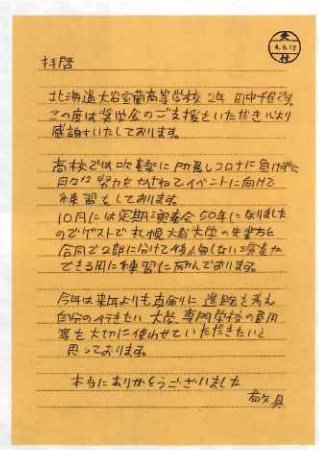 受付
4.8.19
拝啓
北海道大谷室蘭高等学校 2年 田中千花です。
この度は奨学金のご支援をいただき心より
感謝いたしております。
高校では吹奏楽に所属しコロナに負けずに
日々の努力をかさねてイベントに向けて
練習をしております。
10月には定期演奏会50年になりました
のでゲストで札幌大谷大学の先輩方を
合同で2部に分けて悔い無しない演奏が
できる用に練習に励んでおります。
今年は来年よりも真剣に進路を考え
自分の行きたい大学、専門学校の費用
等を大切に使わせていただきたいと
思っております。
本当にありがとうございました
敬具